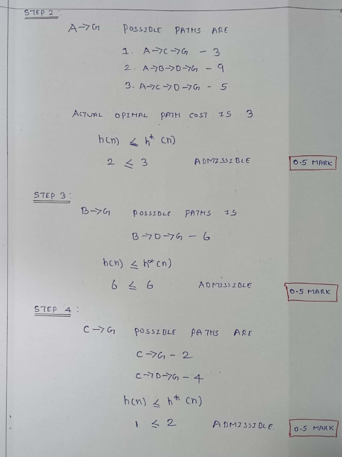 STEP 2
A→G POSSIBLE PATHS ARE
1. A→C→G - 3
2. A→B→D→G - 9
3. A→C→D→G - 5
ACTUAL OPIMAL PATH COST IS 3
h(n) ≤ h* (n)
2 ≤ 3 ADMISSIBLE 0.5 MARK
STEP 3 :
B→G POSSIBLE PATHS IS
B→D→G - 6
h(n) ≤ h*(n)
6 ≤ 6 ADMISSIBLE 0.5 MARK
STEP 4 :
C→G POSSIBLE PATHS ARE
C→G - 2
C→D→G - 4
h(n) ≤ h* (n)
1 ≤ 2 ADMISSIBLE 0.5 MARK